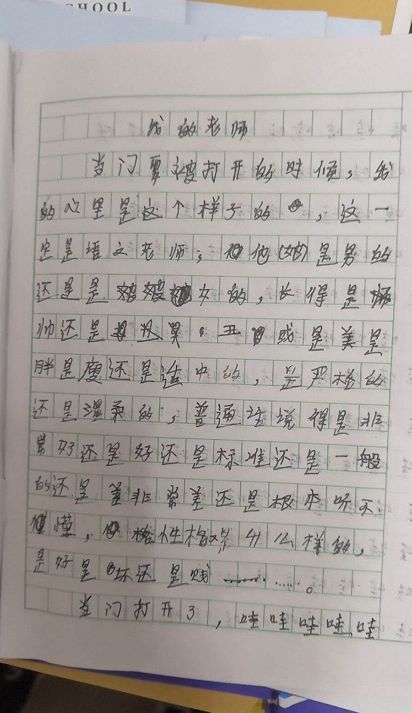 CHOOL
我的老师
当门要被打开的时候，我
的心里是这个样子的，这一
定是语文老师；他(她)是男的
还是是女的，长得是
帅还是是美是
胖是瘦还是适中的，是严格的
还是温柔的，普通话说得是非
常好还是好还是标准还是一般
的还是差非常差还是根本听不
懂，性格是什么样的，
是好是坏还是贱…………。
当门打开了，哇哇哇哇哇